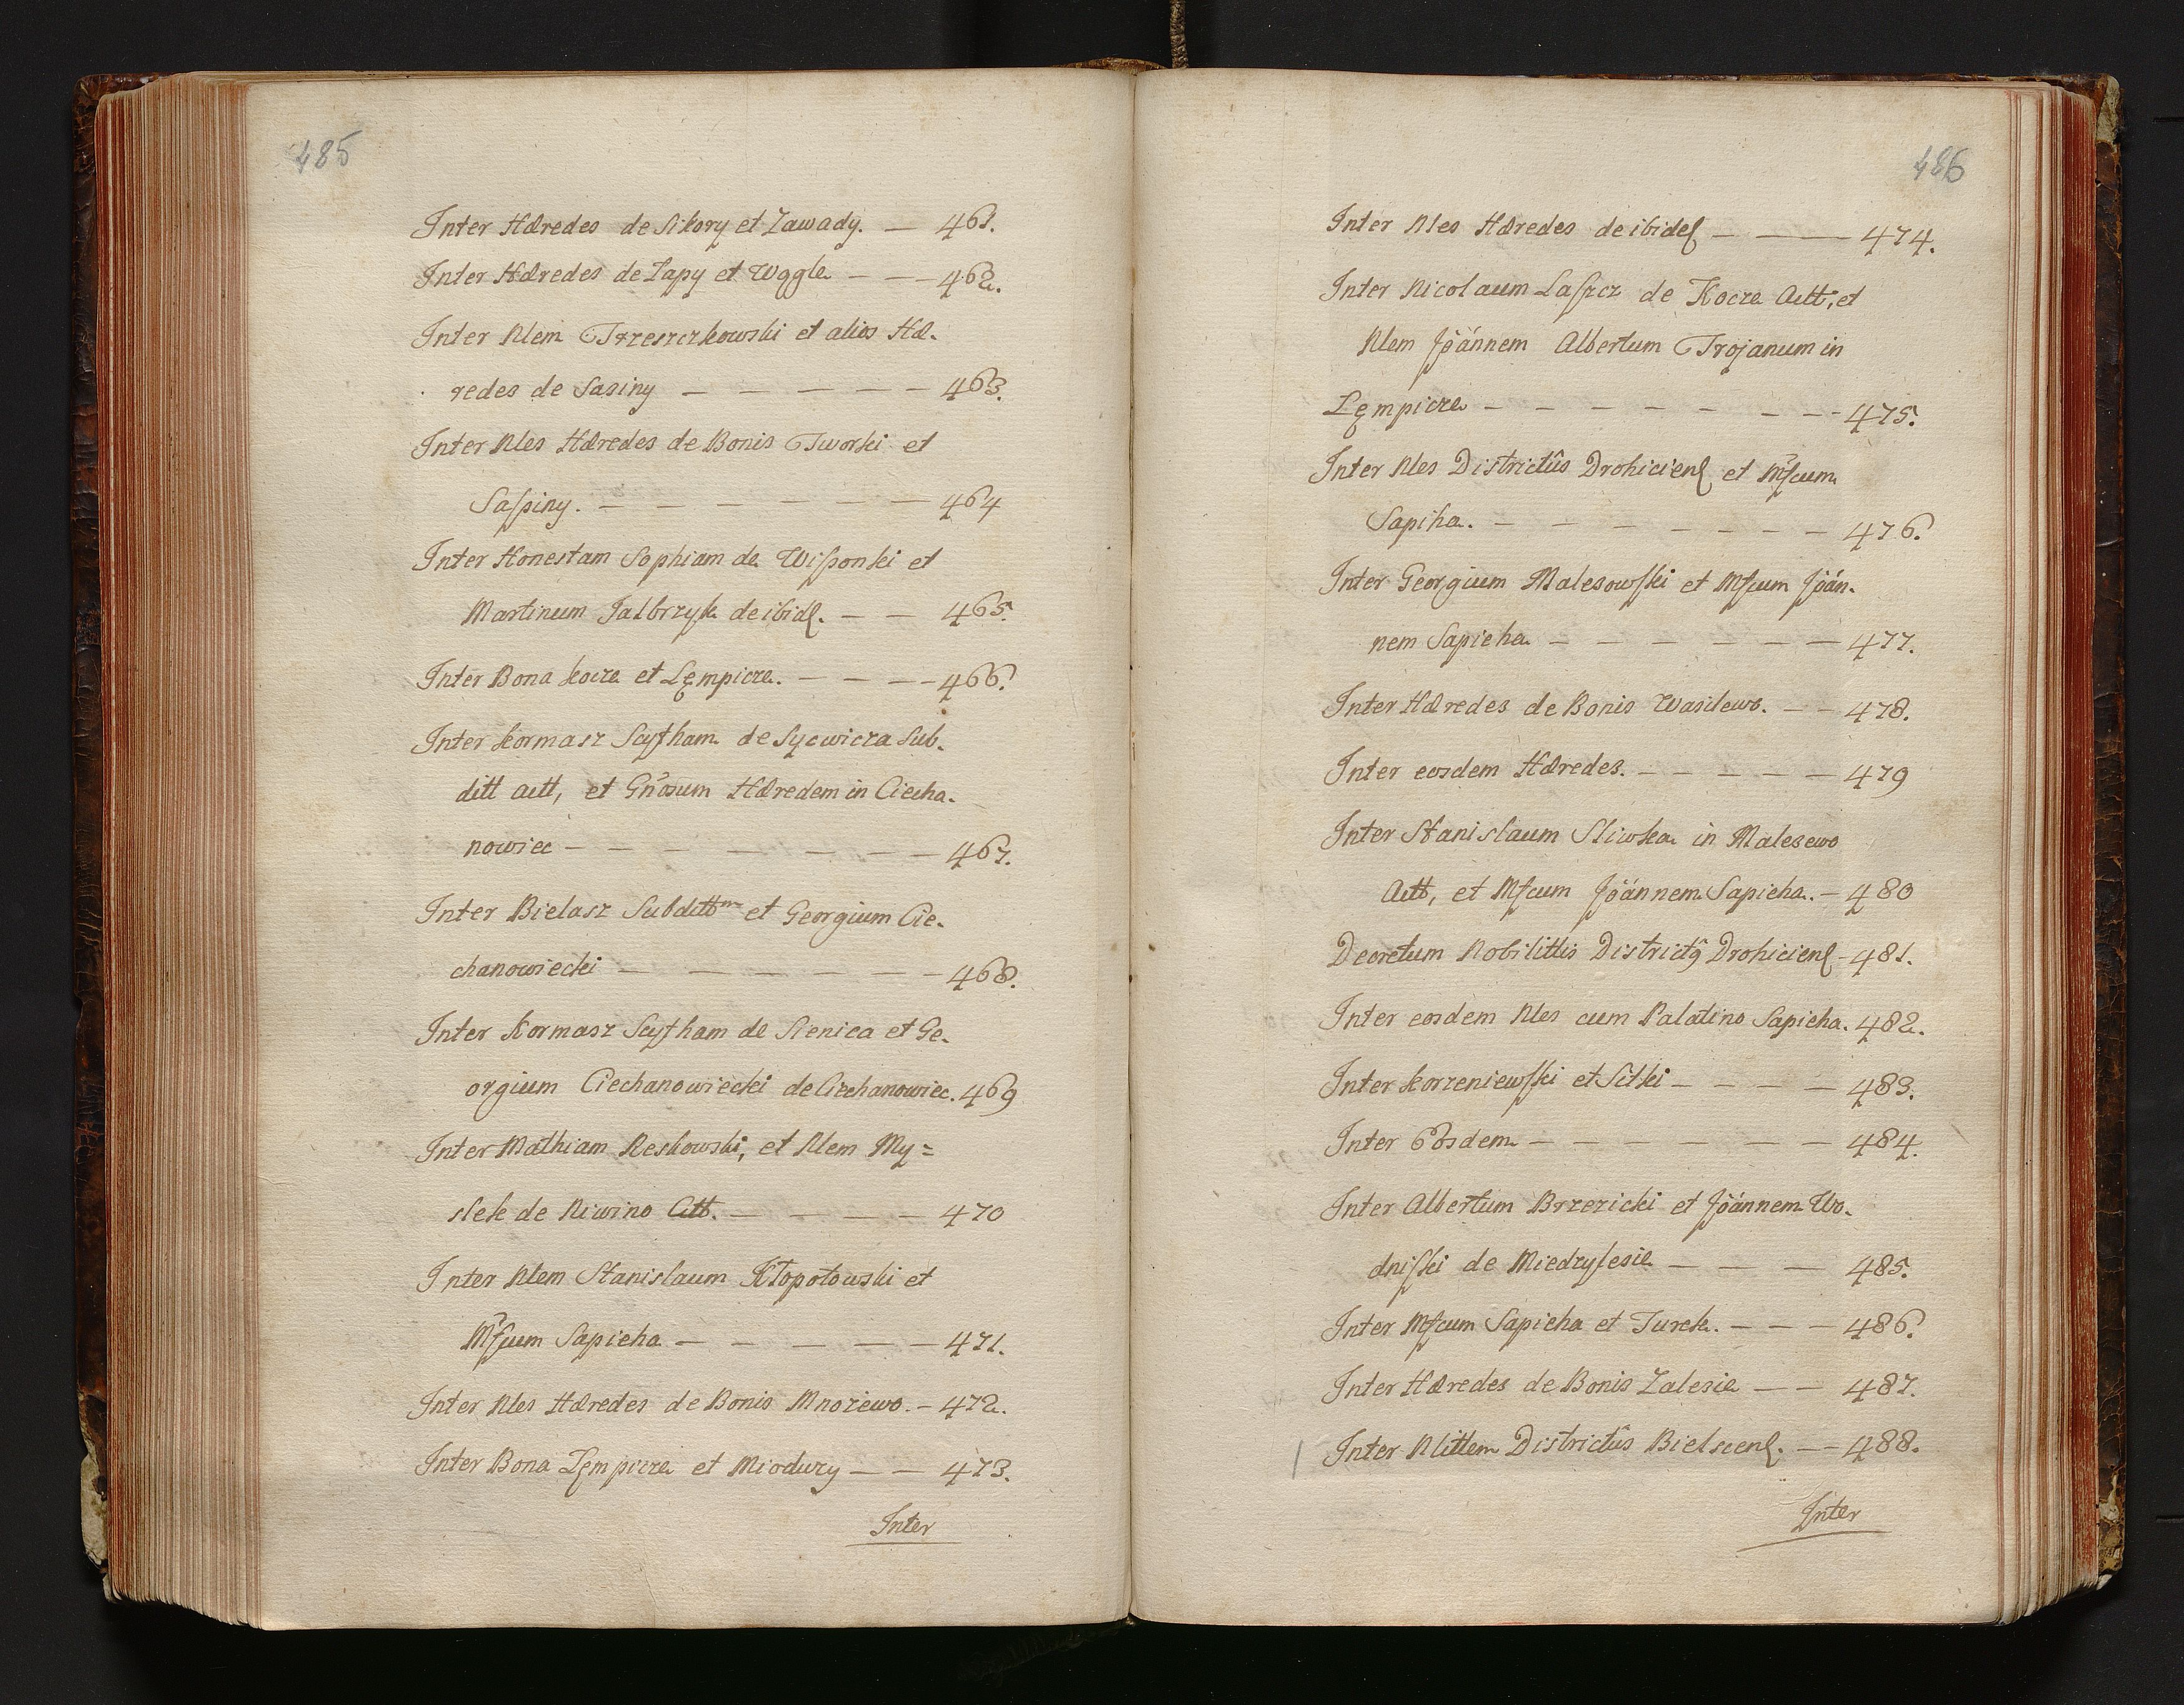 485
Inter Hæredes de Sikory et Zawady. — 461.
Inter Hæredes de Łapy et Wggle — — 462.
Inter Nlem Trzeszczkowski et alios Hæ-
redes de Sasiny — — — — — 463.
Inter Nles Hæredes de Bonis Tworki et
Saſsiny. — — — — — — 464
Inter Honestam Sophiam de Wiſzonki et
Martinum Jalbrzyk de ibidſ. — — 465.
Inter Bona kocze et Lęmpicze. — — — 466.
Inter kormasz Scytham de Sycwicza Sub-
ditt Actt, et Gnosum Hæredem in Ciecha-
nowiec — — — — — — — 467.
Inter Bielasz Subdittm et Georgium Cie-
chanowiecki — — — — — — 468.
Inter Kormasz Scytham de Stenica et Ge-
orgium Ciechanowiecki de Ciechanowiec. 469
Inter Mathiam Reskowski, et Nlem My=
slek de Niwino Ctt. — — — — 470
Inter Nlem Stanislaum Kłopotowski et
Mfcum Sapieha — — — — — 471.
Inter Nles Hæredes de Bonis Mnożewo. — 472.
Inter Bona Lęmpicze et Miodury — — 473.
Inter
486
Inter Nles Hæredes de ibideſ — — — 474.
Inter Nicolaum Laſzcz de Kocze Actt; et
Nlem Joánnem Albertum Trojanum in
Lęmpicze — — — — — — — — 475.
Inter Nles Districtûs Drohicienſ et Mfcum
Sapiha. — — — — — — — 476.
Inter Georgium Malesowſki et Mfcum Joán-
nem Sapieha — — — — — — 477.
Inter Hæredes de Bonis Wasilewo. — — 478.
Inter eosdem Hæredes. — — — — — 479
Inter Stanislaum Sliwka in Malesewo
Actt, et Mfcum Joánnem Sapieha. — 480
Decretum Nobilittis Districtg Drohicienſ — 481.
Inter eosdem Nles cum Palatino Sapieha. 482.
Inter korzeniewſki et Sitki — — — — 483.
Inter Eosdem — — — — — — 484.
Inter Albertum Brzezicki et Joánnem Wo-
dniſki de Miedzyleſie — — — 485.
Inter Mfcum Sapieha et Turek. — — — 486.
Inter Hæredes de Bonis Zalesie — — 487.
Inter Nlittem Districtûs Bielscenſ. — — 488.
Inter